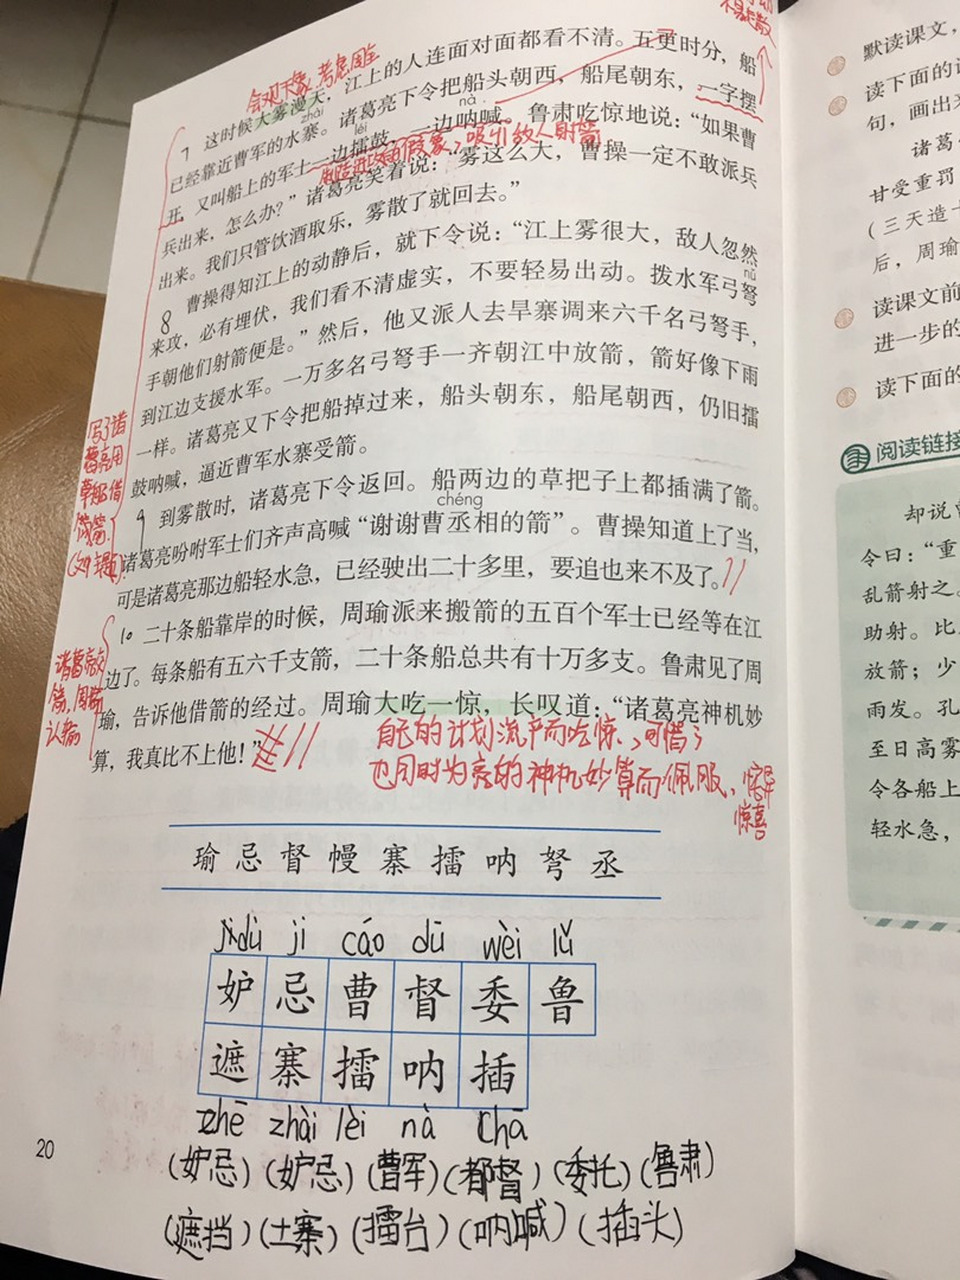 会观天象,考虑周全
7 这时候大雾漫天,江上的人连面对面都看不清。五更时分,船
zhài nà
已经靠近曹军的水寨。诸葛亮下令把船头朝西,船尾朝东,一字摆
léi
开,又叫船上的军士一边擂鼓,一边呐喊。鲁肃吃惊地说:“如果曹
吸引敌人射箭
兵出来,怎么办?”诸葛亮笑着说:“雾这么大,曹操一定不敢派兵
出来。我们只管饮酒取乐,雾散了就回去。”
8 曹操得知江上的动静后,就下令说:“江上雾很大,敌人忽然
nǔ
来攻,必有埋伏,我们看不清虚实,不要轻易出动。拨水军弓弩
手朝他们射箭便是。”然后,他又派人去旱寨调来六千名弓弩手,
到江边支援水军。一万多名弓弩手一齐朝江中放箭,箭好像下雨
一样。诸葛亮又下令把船掉过来,船头朝东,船尾朝西,仍旧擂
鼓呐喊,逼近曹军水寨受箭。
写了诸
葛亮用
草船借
箭
9 到雾散时,诸葛亮下令返回。船两边的草把子上都插满了箭。
chéng
诸葛亮吩咐军士们齐声高喊“谢谢曹丞相的箭”。曹操知道上了当,
可是诸葛亮那边船轻水急,已经驶出二十多里,要追也来不及了。
10 二十条船靠岸的时候,周瑜派来搬箭的五百个军士已经等在江
边了。每条船有五六千支箭,二十条船总共有十万多支。鲁肃见了周
瑜,告诉他借箭的经过。周瑜大吃一惊,长叹道:“诸葛亮神机妙
算,我真比不上他!”
诸葛亮交
箭,周瑜
认输
自己的计划流产而吃惊、可惜;
也同时为亮的神机妙算而佩服、惊异
惊喜
瑜 忌 督 幔 寨 擂 呐 弩 丞
jìdù jì cáo dū wèi lǔ
妒 忌 曹 督 委 鲁
遮 寨 擂 呐 插
zhē zhài lèi nà chā
(妒忌)(妒忌)(曹军)(都督)(委托)(鲁肃)
(遮挡)(土寨)(擂台)(呐喊)(插头)
20
默读课文,
读下面的
句,画出
诸葛
甘受重罚
(三天造
后,周瑜
读课文前
进一步的
读下面的
阅读链接
却说
令曰:“重
乱箭射之。
助射。比
放箭;少
雨发。孔
至日高雾
令各船上
轻水急,